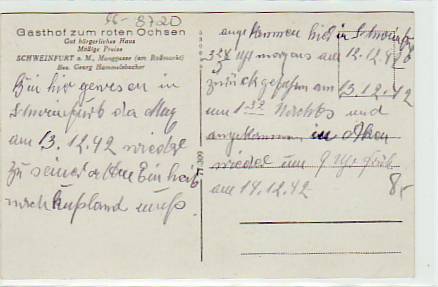 86-8720
Gasthof zum roten Ochsen
Gut bürgerliches Haus
Mäßige Preise
SCHWEINFURT a. M., Manggasse (am Roßmarkt)
Bes. Georg Hammelsbacher
Bin hier gewesen in
Schweinfurt da May
am 13.12.42 wieder
zu seiner alten Einheit
nach Rußland muß.
angekommen hier in Schweinfurt
3 Uhr morgens am 12.12.42
zurückgefahren am 13.12.42
um 1 Nachts und
angekommen in
wieder um 9 Uhr früh
am 14.12.42
8,-